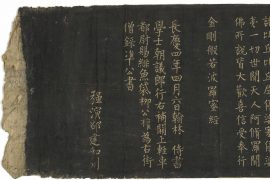 夷一切世間天人阿脩羅聞
佛所說皆大歡喜信受奉行
金剛般若波羅蜜經
長慶四年四月六日翰林侍書
學士朝議郎行右補闕上輕車
都尉賜緋魚袋柳公權為右街
僧錄準公書
強演邵建和刻